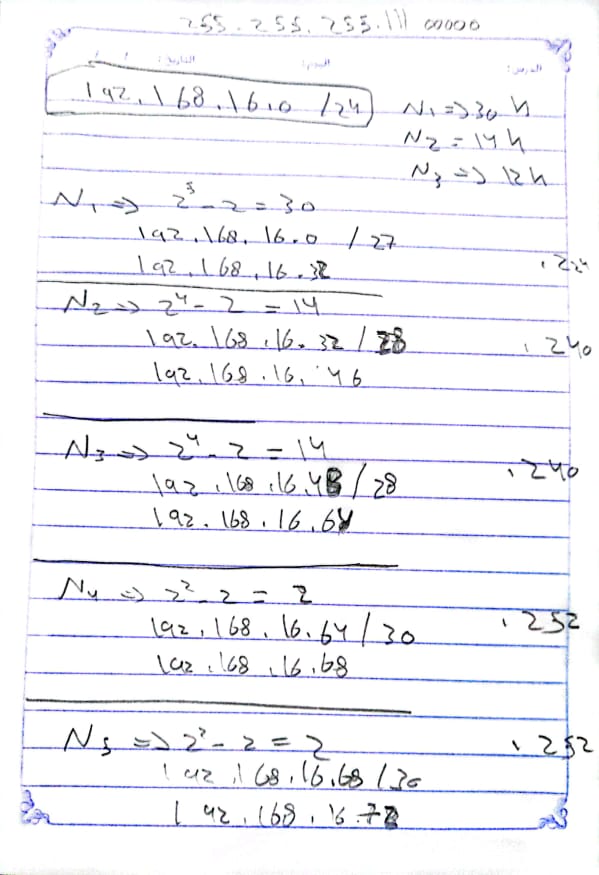 255.255.255.111 00000
الدرس: اليوم: التاريخ: / /
192.168.16.0 /24
N1 => 30 h
N2 = 14 h
N3 => 12 h
N1 => 2^5 - 2 = 30
192.168.16.0 / 27
192.168.16.32 .224
N2 => 2^4 - 2 = 14
192.168.16.32 / 28 .240
192.168.16.46
N3 => 2^4 - 2 = 14
192.168.16.48 / 28 .240
192.168.16.64
N4 => 2^2 - 2 = 2
192.168.16.64 / 30 .252
192.168.16.68
N5 => 2^2 - 2 = 2 .252
192.168.16.68 / 30
192.168.16.72